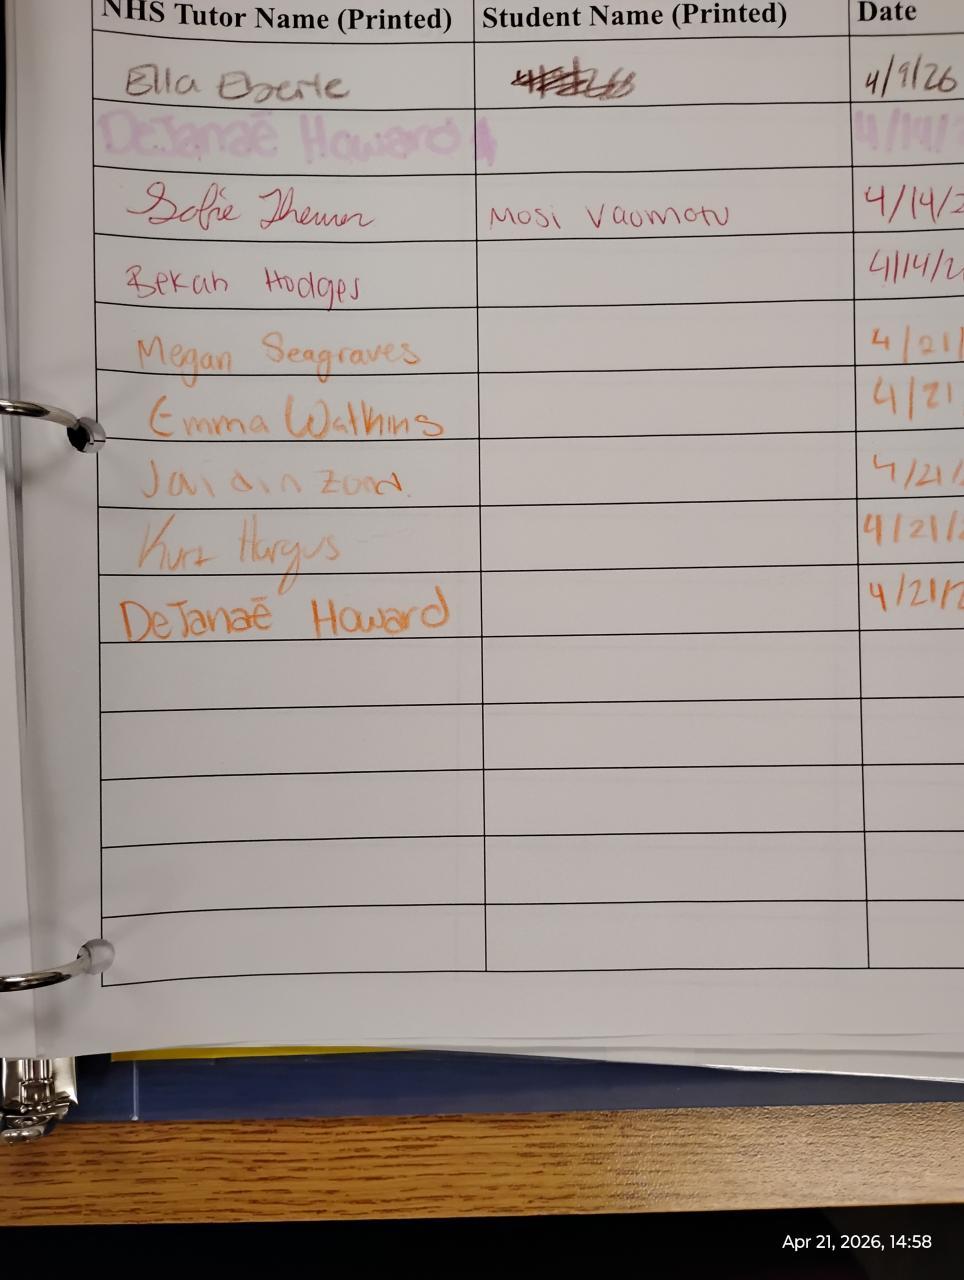 NHS Tutor Name (Printed) Student Name (Printed) Date
Ella Eberle 4/9/26
DeJanaē Howard 4/14/
Sofie 4/14/2
Mosi Vaomotu
Bekah Hodges 4/14/2
Megan Seagraves 4/21/
Emma Watkins 4/21
Jaidin Zood 4/21/
Kurt Hargus 4/21/2
DeJanaē Howard 4/21/2
Apr 21, 2026, 14:58